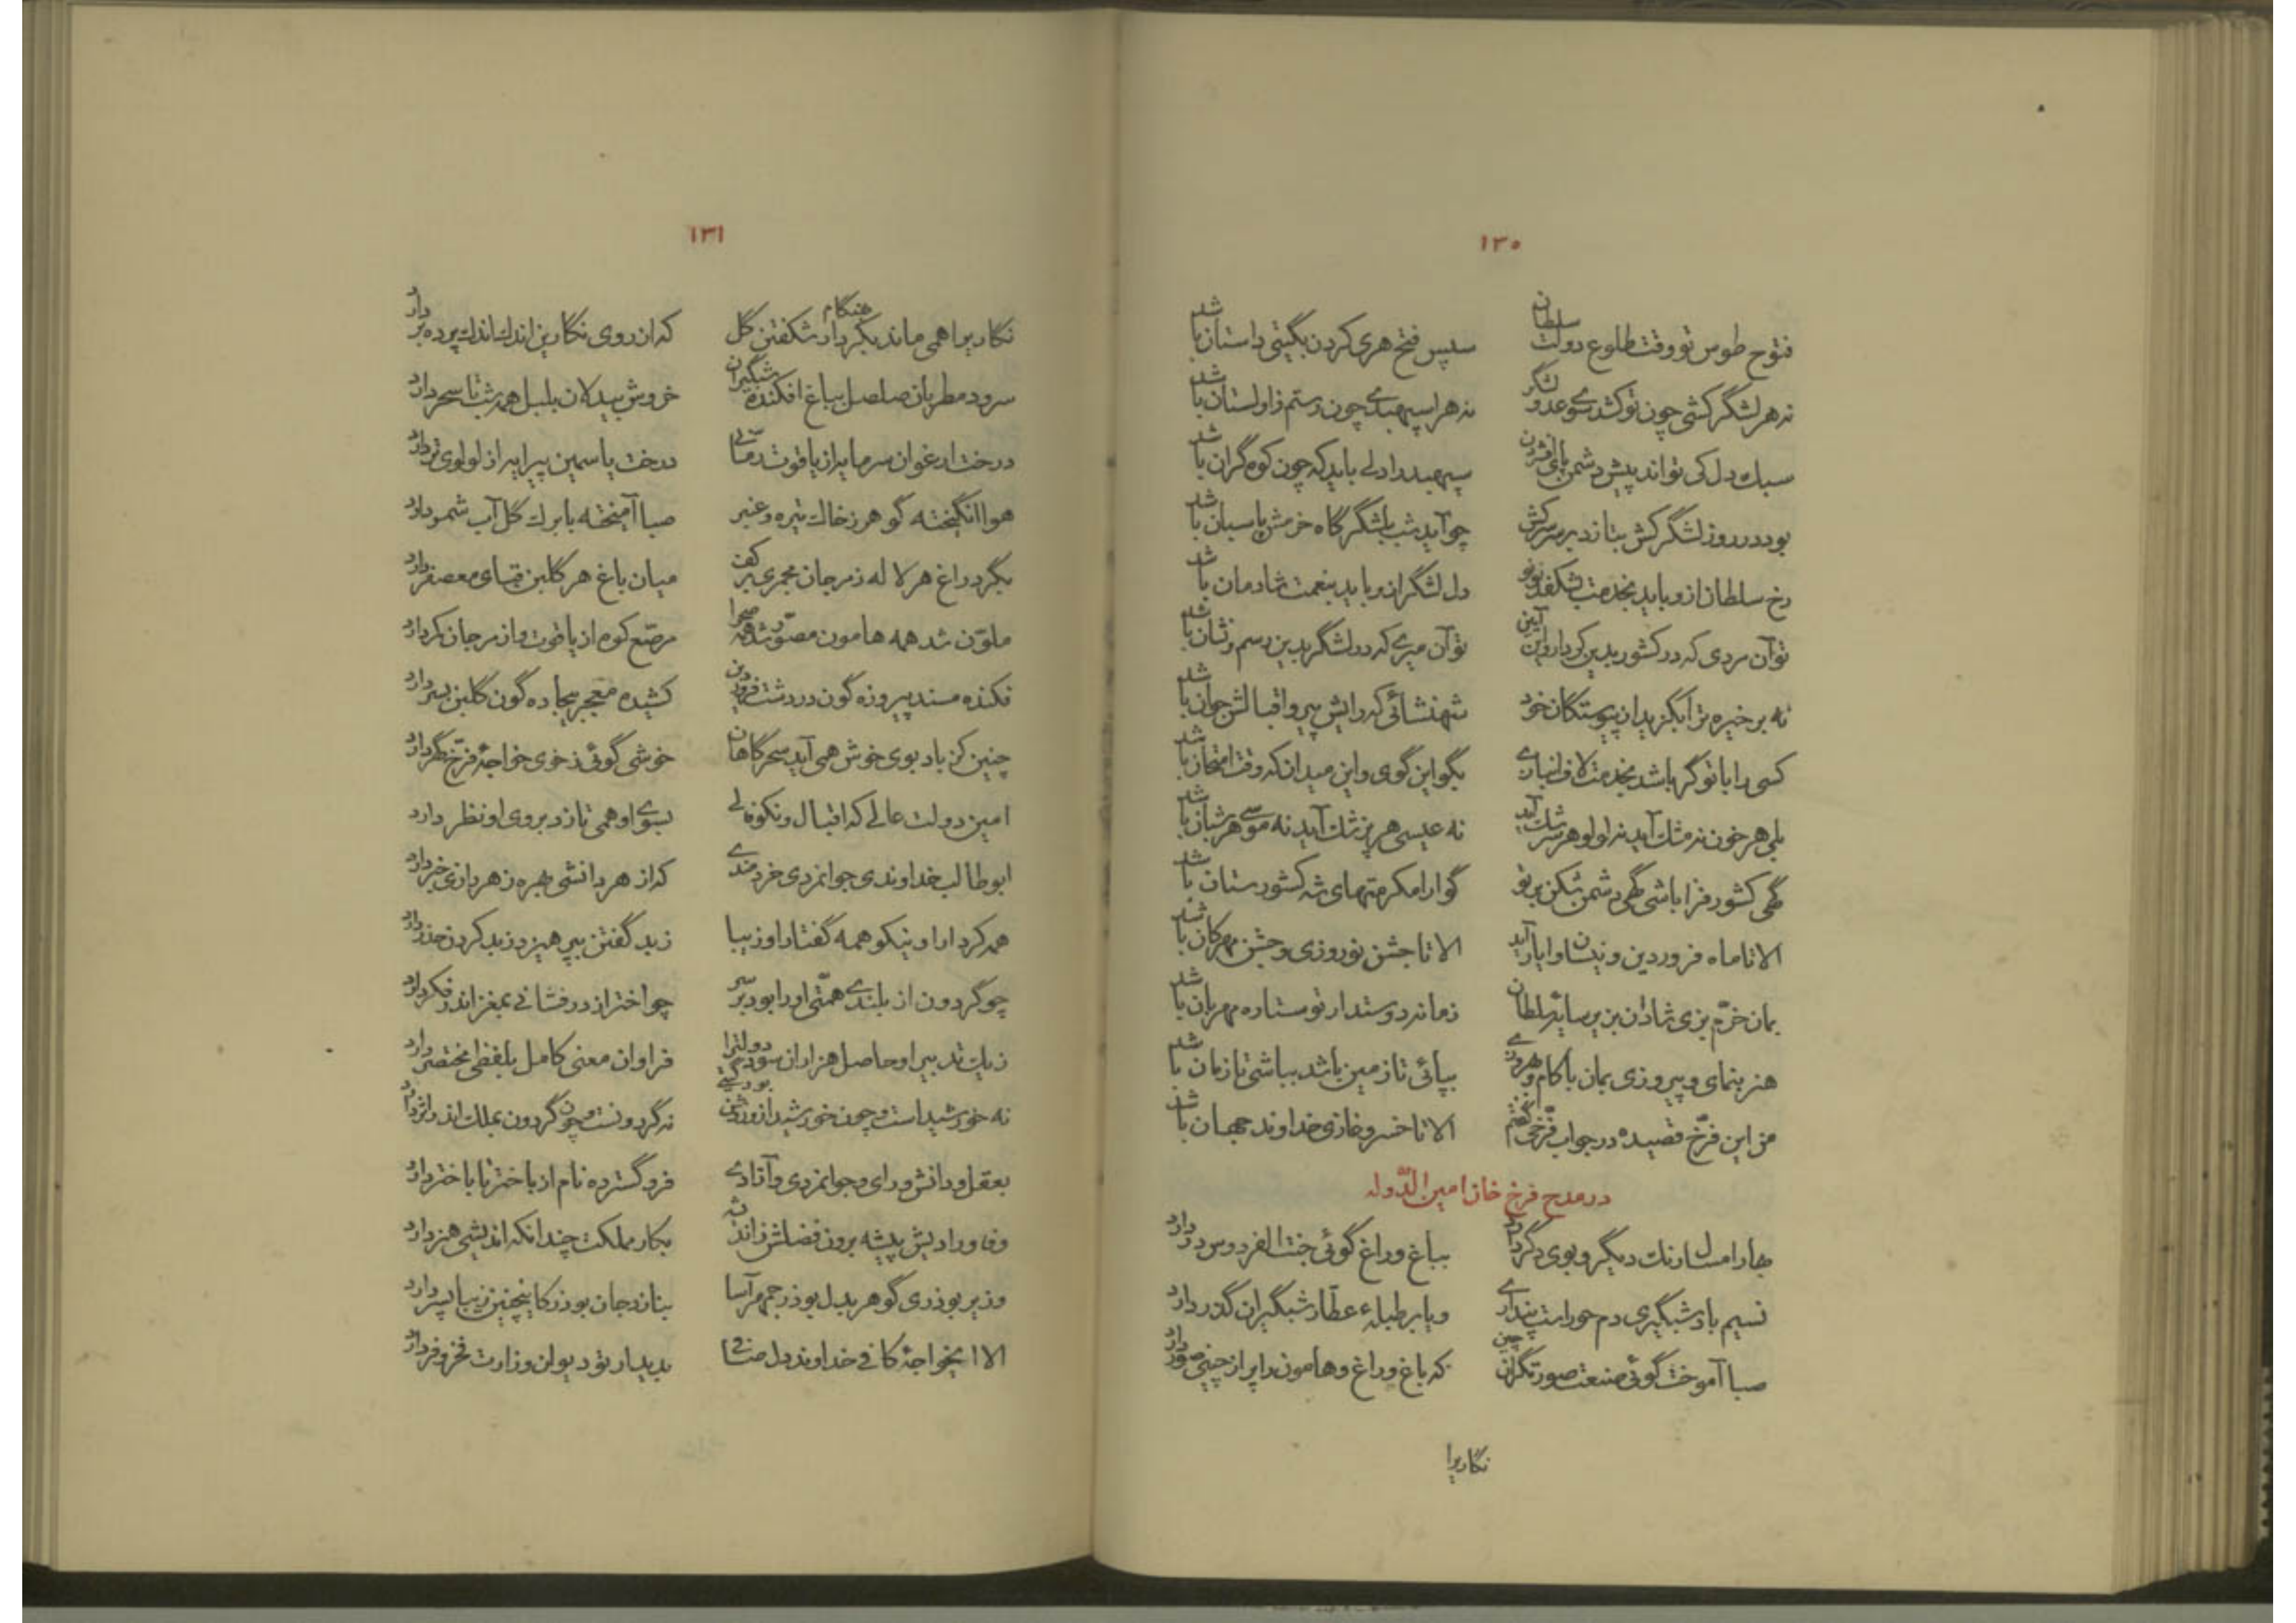 ۱۳۰
فتوح طوس تو وقت طلوع دولت سلطان سپس فتح هری کردن بگیتی داستان باشد
نه هر لشگر کشی چون تو کشد سوی عدو لشگر نه هر اسپهبدی چون رستم زاولستان باشد
سبك دل کی تواند پیش دشمن پای افشردن سپهبد را دلی باید که چون کوه گران باشد
بود در روز لشگر کش بتازد بر سر سرکش چو آید شب بلشگرگاه خرمش پاسبان باشد
رخ سلطان ازو باید بخدمت بشکفد نو نو دل لشگر ازو باید بنعمت شادمان باشد
تو آن مردی که در کشور بدین کردار و این آیین تو آن میری که در لشگر بدین رسم و نشان باشد
نه بر خیره ترا بگزید از پیوستگان خود شهنشائی که رایش پیر و اقبالش جوان باشد
کسی را با تو گر باشد بخدمت لاف انبازی بگو این گوی و این میدان که وقت امتحان باشد
بلی هر خون نه مشك آید نه لولو هر سرشك آید نه عیسی هر پزشك آید نه موسی هر شبان باشد
گهی کشور فزا باشی گهی دشمن شکن بر تو گوارا مکرمتهای شه کشورستان باشد
الا تا ماه فروردین و نیسان و ایار آید الا تا جشن نوروزی و جشن مهرکان باشد
بمان خرّم بزی شادان بزیر سایهٔ سلطان زمانه دوستدار تو ستاره مهربان باشد
هنر بنمای و پیروزی بمان با کام و بهروزی بپائی تا زمین باشد بباشی تا زمان باشد
من این فرّخ قصیده در جواب فرّخی گفتم الا تا خسرو غازی خداوند جهان باشد
در مدح فرخ خان امین الدّوله
بهار امسال رنك دیگر و بوی دگر دارد بباغ و راغ گوئی جنت الفردوس در دارد
نسیم باد شبگیری دم حوراست پنداری و یا بر طبلهٔ عطّار شبگیران گذر دارد
صبا آموخت گوئی صنعت صورتگران چین که باغ و راغ و هامون را پر از چینی صور دارد
نگاریرا
۱۳۱
نگاریرا همی ماند بکردار شکفتن گل هنگام که از روی نگارین اندك اندك پرده بر دارد
سرود مطربان صلصل بباغ افکنده شبگیران خروش بیدلان بلبل همه شب تا سحر دارد
درخت ارغوان سرمایه از یاقوت رمّانی درخت یاسمین پیرایه از لولوی تر دارد
هوا انگیخته گوهر ز خاك تیره و عنبر صبا آمیخته با برك گل آب شمر دارد
بگرد راغ هر لاله ز مرجان مجمری بر کف میان باغ هر گلبن قبای معصفر دارد
ملوّن شد همه هامون مصوّر شد همه صحرا مرصّع کوه از یاقوت و از مرجان کمر دارد
فکنده مسند پیروزه گون در دشت فروردین کشیده معجر بیجاده گون گلبن بسر دارد
چنین کز باد بوی خوش همی آید سحرگاهان خوشی گوئی ز خوی خواجهٔ فرّخ گهر دارد
امین دولت عالی که اقبال و نکوفالی بسوی او همی تازد بروی او نظر دارد
ابوطالب خداوندی جوانمردی خردمندی که از هر دانشی بهره ز هر رازی خبر دارد
همه کردار او نیکو همه گفتار او زیبا ز بد گفتن بپرهیزد ز بد کردن حذر دارد
چو گردون از بلندی همّتی او را بود بر سر چو اختر از درفشانی بمغز اندر فکر دارد
ز یك تدبیر او حاصل هزاران سود دولترا فراوان معنی کامل بلفظی مختصر دارد
نه خورشیداست و چون خورشید ازو روشن بود گیتی نه گردونست و چون گردون بملك اندر اثر دارد
بعقل و دانش و رای و جوانمردی و آزادی فرو گسترده نام از باختر تا باختر دارد
وفا و رادیش پیشه برون فضلش ز اندیشه بکار مملکت چندانکه اندیشی هنر دارد
وزیر بوذری گوهر بدل بوذرجمهر آسا بنازد جان بوذر کاینچنین زیبا پسر دارد
الا ایخواجهٔ کافی خداوند دل صافی بدیدار تو دیوان وزارت فخر و فر دارد